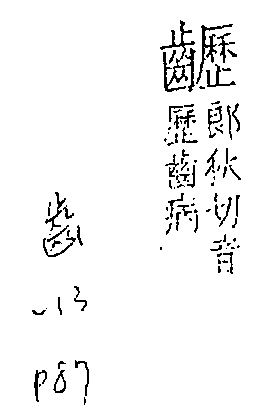 䶥郎狄切音
歷齒病
齒
v13
p87